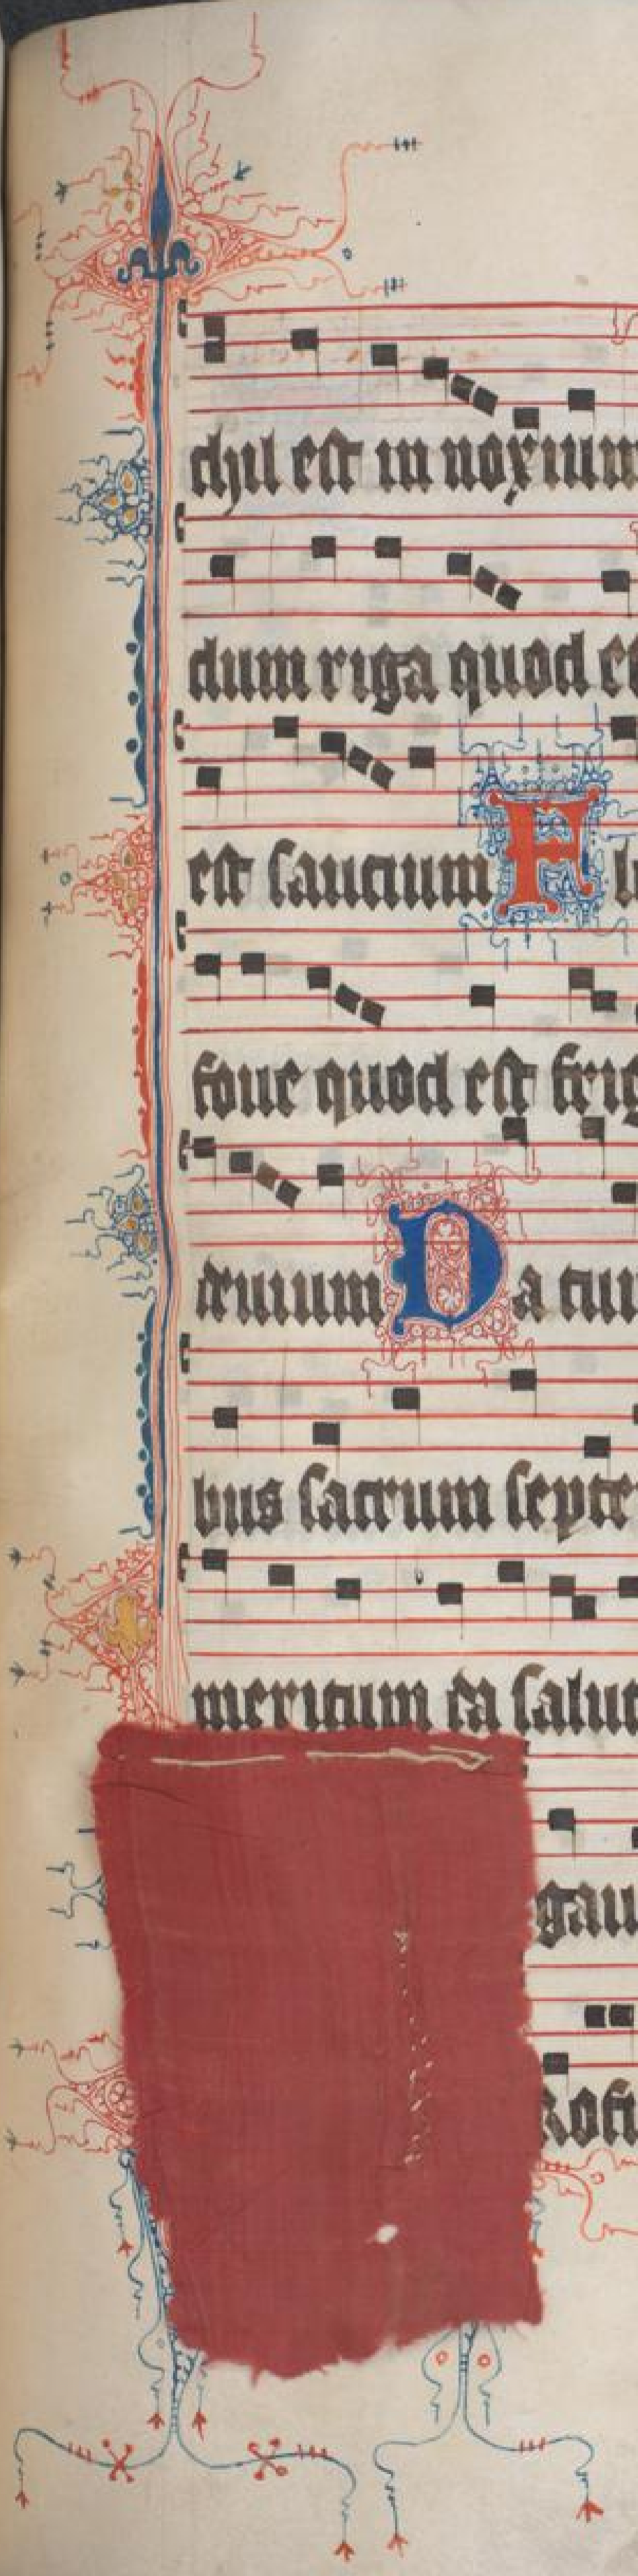 chil est in noxium
dum riga quod est
est saucium Fl
foue quod est frig
deuium Da tui
bus sacrum septe
meritum da salut
gau
Rofu